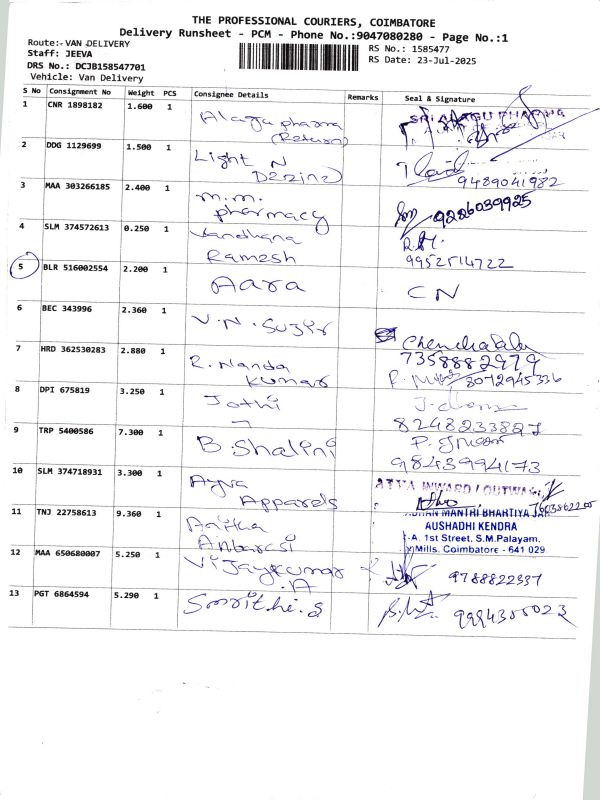 THE PROFESSIONAL COURIERS, COIMBATORE
Delivery Runsheet - PCM - Phone No.:9047080280 - Page No.:1
Route:- VAN DELIVERY
Staff: JEEVA
DRS No.: DCJB158547701
Vehicle: Van Delivery
RS No.: 1585477
RS Date: 23-Jul-2025
S No Consignment No Weight PCS Consignee Details Remarks Seal & Signature
1 CNR 1898182 1.600 1 Alagu pharma (Return) SRI ALAGU PHARMA
2 DDG 1129699 1.500 1 Light N Dezine 9489041982
3 MAA 303266185 2.400 1 M.M. pharmacy 9226039925
4 SLM 374572613 0.250 1 Vandhana Ramesh 9952514722
5 BLR 516002554 2.200 1 Aara CN
6 BEC 343996 2.360 1 V.N. 7358882979
7 HRD 362530283 2.880 1 R. Nanda kumar 8072945336
8 DPI 675819 3.250 1 Jothi 8248233827
9 TRP 5400586 7.300 1 B. Shalini 9843994173
10 SLM 374718931 3.300 1 Apparels INWARD / OUTWARD
11 TNJ 22758613 9.360 1 Anitha Anbarasi MANTRI BHARTIYA JAN
AUSHADHI KENDRA
-A. 1st Street, S.M.Palayam,
Mills, Coimbatore - 641 029
12 MAA 650680007 5.250 1 Vijaykumar .A 9788822337
13 PGT 6864594 5.290 1 Smrithi.s 9994355023